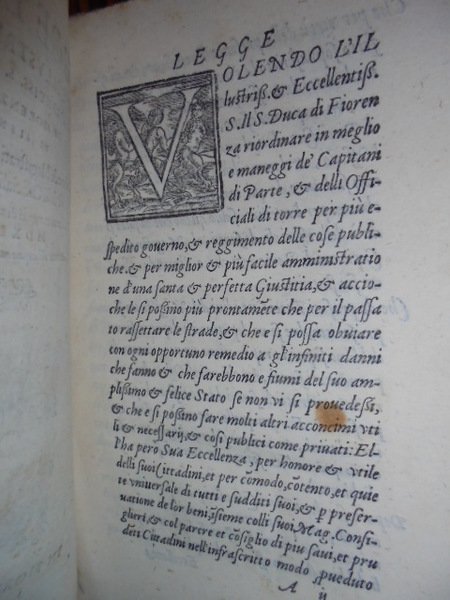 LEGGE
VOLENDO L'IL
lustriß. & Eccellentiß.
S. Il S. Duca di Fioren
za riordinare in meglio
e maneggi de' Capitani
di Parte, & delli Offi-
ciali di torre per più e-
spedito governo, & reggimento delle cose publi-
che. & per miglior & più facile amministratio
ne d'una santa & perfetta Giustitia, & accio-
che le si possino più prontamẽte che per il passa
to rassettare le strade, & che e si possa obuiare
con ogni opportuno remedio a gl'infiniti danni
che fanno & che farebbono e fiumi del suo am-
plißimo & felice Stato se non vi si prouedeßi,
& che e si poßino fare molti altri acconcimi vti
li & necessarij, & cosi publici come priuati: El-
l'ha pero Sua Eccellenza, per honore & vtile
delli suoi Cittadini, et per cõmodo, cõtento, et quie
te vniuersale di tutti e sudditi suoi, & ꝑ preser-
uatione de lor beni, insieme colli suoi Mag. Consi-
glieri, & col parere et cõsiglio di piu saui, et pru
dẽti Cittadini nell'infrascritto modo ꝓueduto
A ij